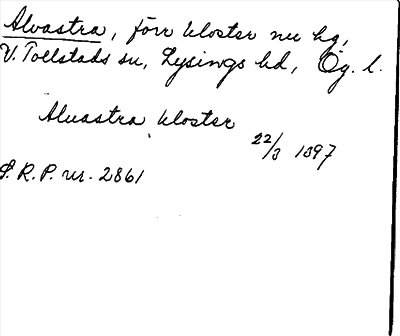 Alvastra, förr kloster nu hg,
V. Tollstads sn, Lysings hd, Ög. l.
Alvastra kloster
22/3 1397
S. R. P. nr. 2861